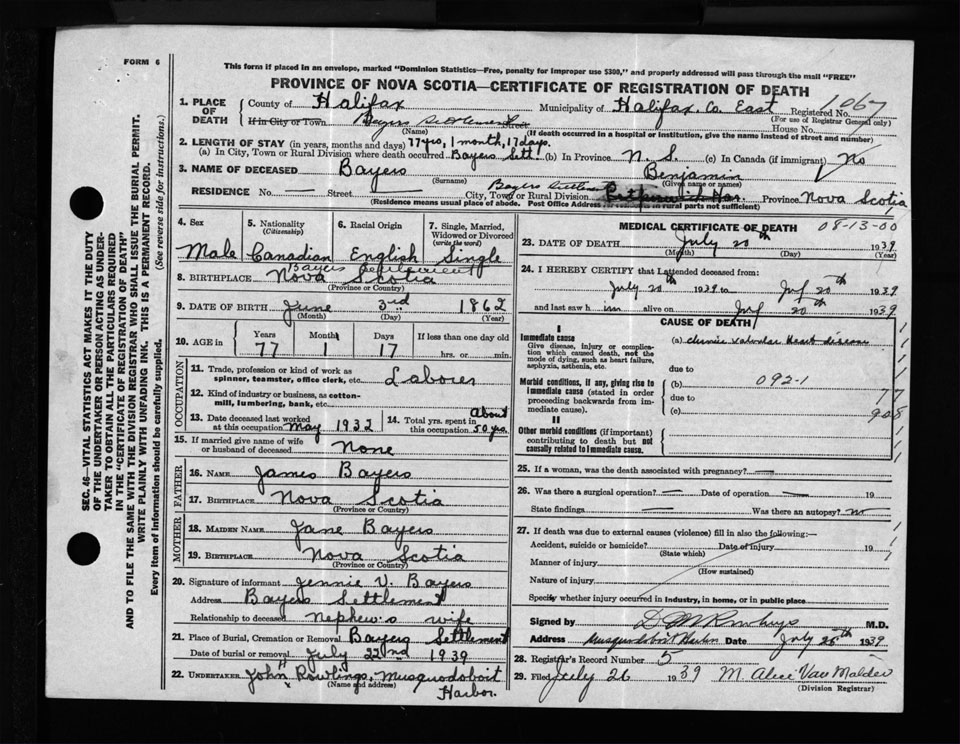 FORM 6
This form if placed in an envelope, marked "Dominion Statistics—Free, penalty for improper use $300," and properly addressed will pass through the mail "FREE"
PROVINCE OF NOVA SCOTIA—CERTIFICATE OF REGISTRATION OF DEATH
1067
1. PLACE OF DEATH County of Halifax Municipality of Halifax Co. East Registered No.
(For use of Registrar General only)
If in City or Town Bayers Settlement Street House No.
(Name) (If death occurred in a hospital or institution, give the name instead of street and number)
2. LENGTH OF STAY (in years, months and days) 77 yrs, 1 month, 17 days.
(a) In City, Town or Rural Division where death occurred Bayers Sett. (b) In Province N. S. (c) In Canada (if immigrant) No
3. NAME OF DECEASED Bayers Benjamin
(Surname) (Given name or names)
RESIDENCE No. — Street — City, Town or Rural Division Bayers Province Nova Scotia
(Residence means usual place of abode. Post Office Address in rural parts not sufficient)
4. Sex Male
5. Nationality (Citizenship) Canadian
6. Racial Origin English
7. Single, Married, Widowed or Divorced (write the word) Single
8. BIRTHPLACE Bayers Settlement Nova Scotia
(Province or Country)
9. DATE OF BIRTH June 3rd 1862
(Month) (Day) (Year)
10. AGE Years 77 Months 1 Days 17 If less than one day old
hrs. or min.
OCCUPATION
11. Trade, profession or kind of work as spinner, teamster, office clerk, etc. Laborer
12. Kind of industry or business, as cotton-mill, lumbering, bank, etc.
13. Date deceased last worked at this occupation May 1932
14. Total yrs. spent in this occupation About 50 yrs.
15. If married give name of wife or husband of deceased None
FATHER
16. Name James Bayers
17. Birthplace Nova Scotia
(Province or Country)
MOTHER
18. Maiden Name Jane Bayers
19. Birthplace Nova Scotia
(Province or Country)
20. Signature of informant Jennie V. Bayers
Address Bayers Settlement
Relationship to deceased nephew's wife
21. Place of Burial, Cremation or Removal Bayers Settlement
Date of burial or removal July 22nd 1939
22. UNDERTAKER John H Rowlings, Musquodoboit Harbor.
(Name and address)
MEDICAL CERTIFICATE OF DEATH 08-13-00
23. DATE OF DEATH July 20th 1939
(Month) (Day) (Year)
24. I HEREBY CERTIFY that I attended deceased from:
July 20th 1939 to July 20th 1939
and last saw him alive on July 20th 1939
CAUSE OF DEATH
I
Immediate cause
Give disease, injury or complication which caused death, not the mode of dying, such as heart failure, asphyxia, asthenia, etc.
(a) chronic valvular heart disease
due to
Morbid conditions, if any, giving rise to immediate cause (stated in order proceeding backwards from immediate cause).
(b) 092-1
due to
(c)
77
908
II
Other morbid conditions (if important) contributing to death but not causally related to immediate cause.
25. If a woman, was the death associated with pregnancy? —
26. Was there a surgical operation? — Date of operation — 19
State findings — Was there an autopsy? no
27. If death was due to external causes (violence) fill in also the following:—
Accident, suicide or homicide? Date of injury 19
(State which)
Manner of injury
(How sustained)
Nature of injury
Specify whether injury occurred in industry, in home, or in public place
Signed by M.D.
Address Musquodoboit Harbor Date July 25th 1939
28. Registrar's Record Number 5
29. Filed July 26 1939 M. Alice Van Malder
(Division Registrar)
SEC. 46—VITAL STATISTICS ACT MAKES IT THE DUTY
OF THE UNDERTAKER OR PERSON ACTING AS UNDER-
TAKER TO OBTAIN ALL THE PARTICULARS REQUIRED
IN THE "CERTIFICATE OF REGISTRATION OF DEATH"
AND TO FILE THE SAME WITH THE DIVISION REGISTRAR WHO SHALL ISSUE THE BURIAL PERMIT.
WRITE PLAINLY WITH UNFADING INK. THIS IS A PERMANENT RECORD.
Every item of information should be carefully supplied. (See reverse side for instructions.)